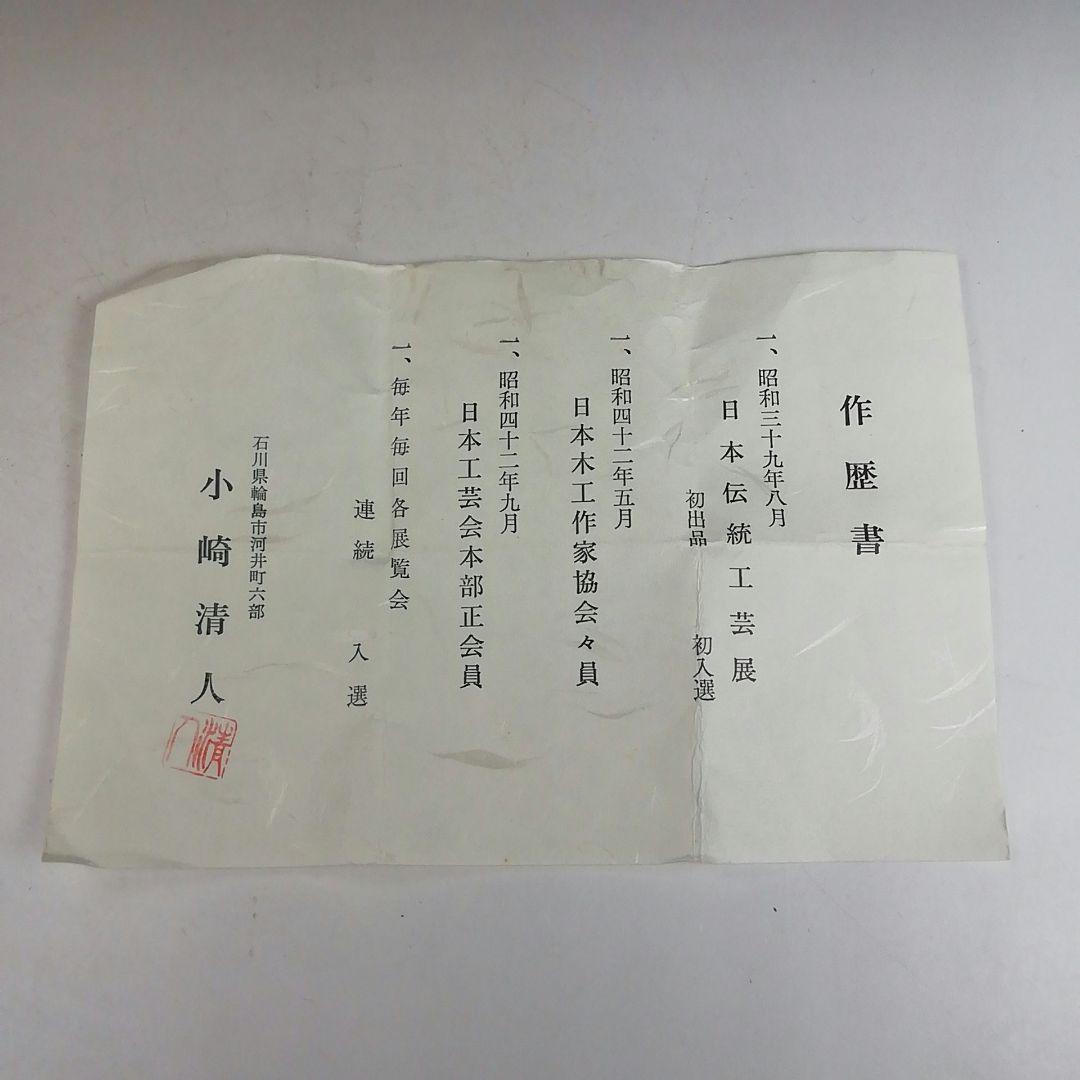 作歴書
一、昭和三十九年八月
日本伝統工芸展
初出品　初入選
一、昭和四十二年五月
日本木工作家協会々員
一、昭和四十二年九月
日本工芸会本部正会員
一、毎年毎回各展覧会
連続　入選
石川県輪島市河井町六部
小崎清人
清人